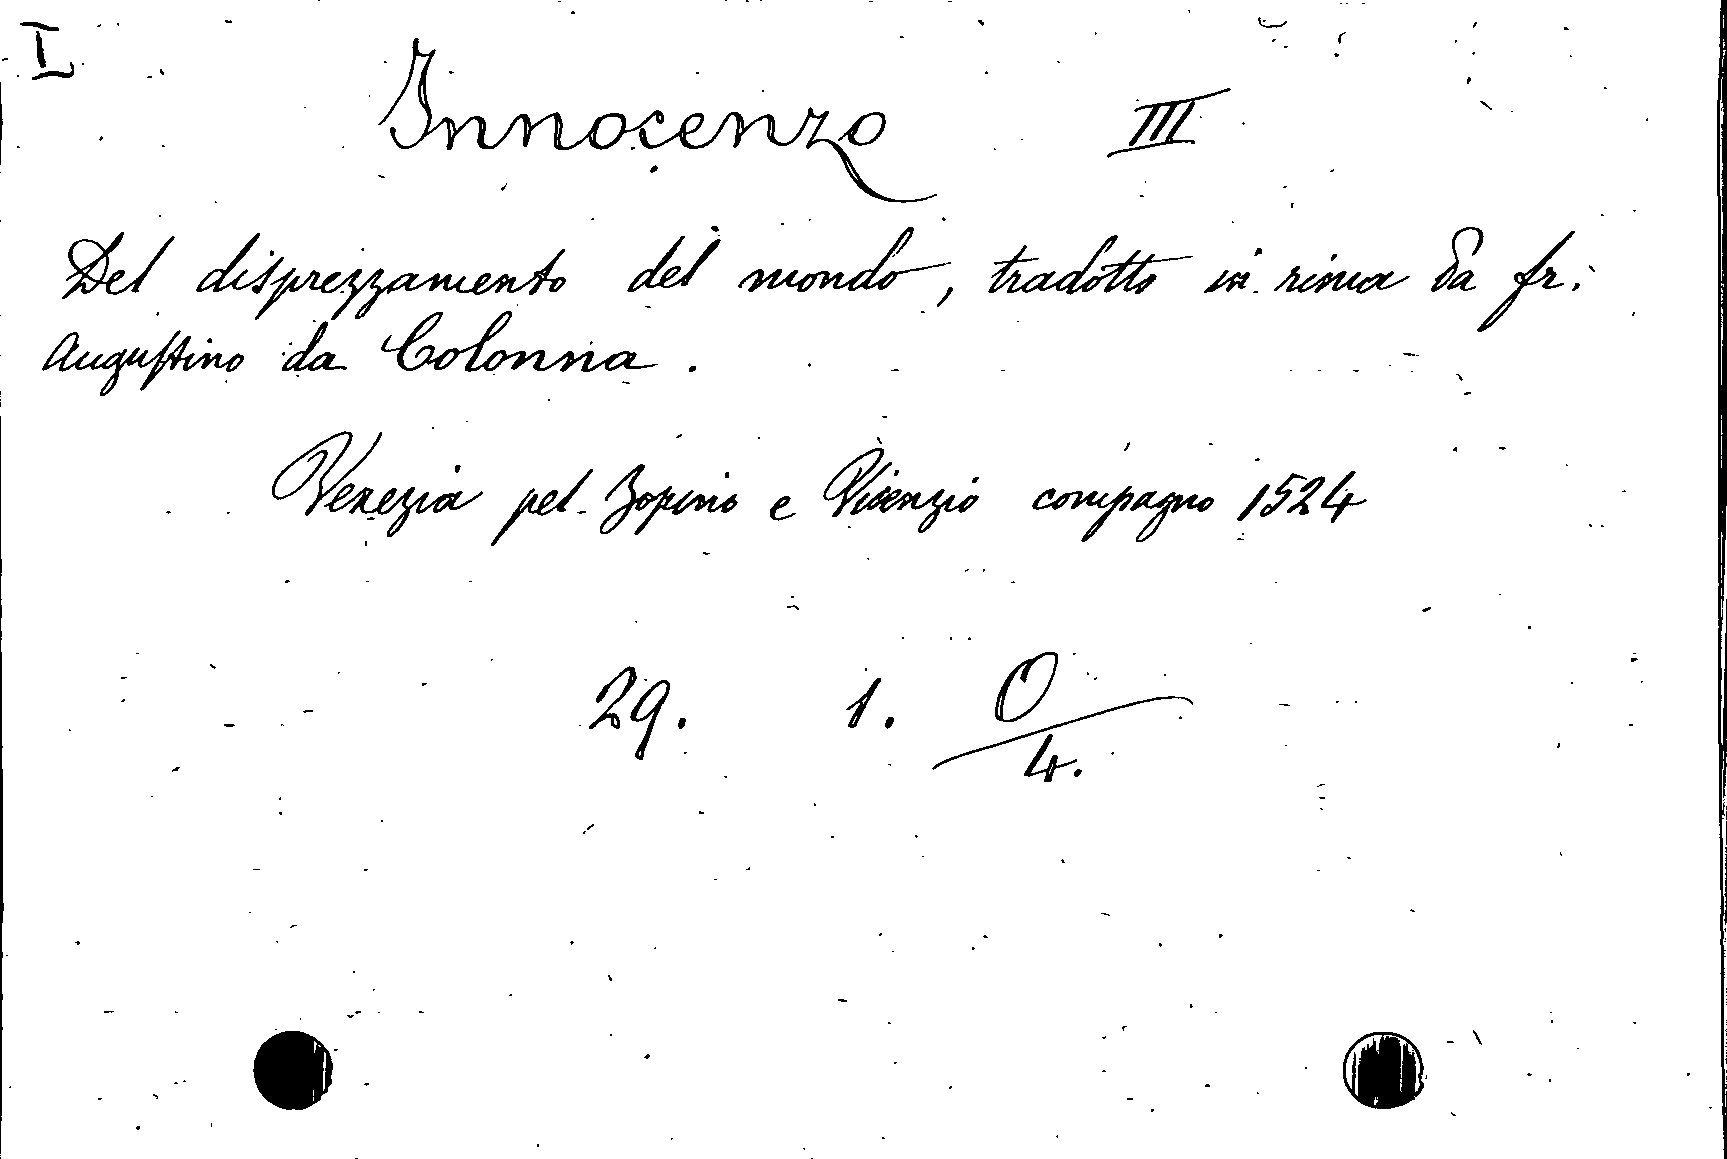 I
Innocenzo III
Del disprezzamento del mondo, tradotto in rima da fr.
Augustino da Colonna.
Venezia pel Zopino e Vicenzio compagno 1524
29. 1. O/4.